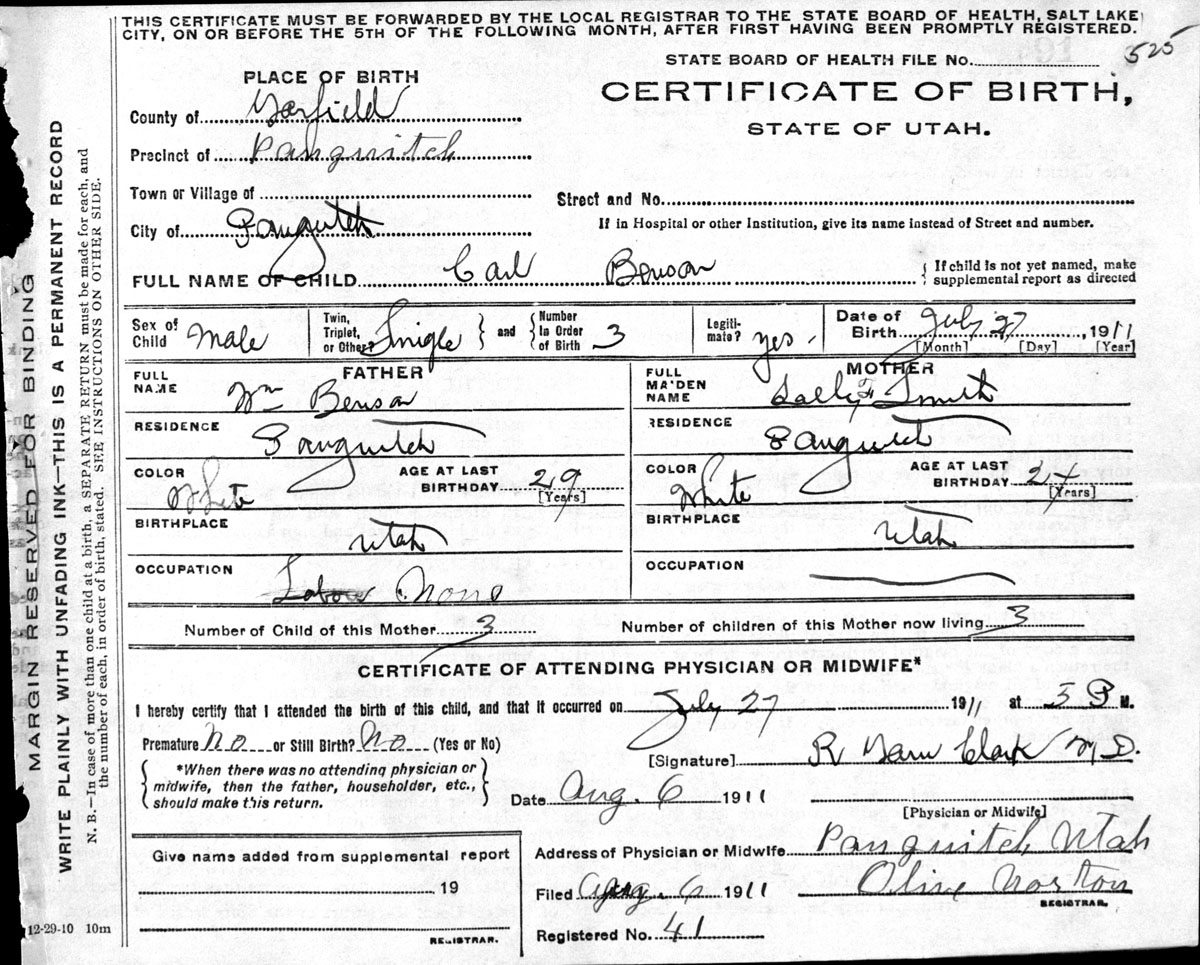 THIS CERTIFICATE MUST BE FORWARDED BY THE LOCAL REGISTRAR TO THE STATE BOARD OF HEALTH, SALT LAKE
CITY, ON OR BEFORE THE 5TH OF THE FOLLOWING MONTH, AFTER FIRST HAVING BEEN PROMPTLY REGISTERED.
STATE BOARD OF HEALTH FILE No. 525
PLACE OF BIRTH
CERTIFICATE OF BIRTH,
STATE OF UTAH.
County of Garfield
Precinct of Panguitch
Town or Village of
Street and No.
City of Panguitch
If in Hospital or other Institution, give its name instead of Street and number.
FULL NAME OF CHILD Carl Benson
{ If child is not yet named, make
supplemental report as directed
Sex of Child Male
Twin, Triplet, or Other? Snigle } and { Number In Order of Birth 3
Legiti- mate? yes.
Date of Birth July 27, 1911
[Month] [Day] [Year]
FATHER
FULL NAME Wm Benson
RESIDENCE Panguitch
COLOR White AGE AT LAST BIRTHDAY 29
[Years]
BIRTHPLACE Utah
OCCUPATION Labor None
MOTHER
FULL MAIDEN NAME Sally F Smith
RESIDENCE Panguitch
COLOR White AGE AT LAST BIRTHDAY 24
[Years]
BIRTHPLACE Utah
OCCUPATION
Number of Child of this Mother 3 Number of children of this Mother now living 3
CERTIFICATE OF ATTENDING PHYSICIAN OR MIDWIFE*
I hereby certify that I attended the birth of this child, and that it occurred on July 27 1911 at 5 P M.
Premature No or Still Birth? No (Yes or No)
[Signature] R Clark M.D.
{ *When there was no attending physician or
midwife, then the father, householder, etc.,
should make this return. }
Date Aug. 6 1911
[Physician or Midwife]
Give name added from supplemental report
19
REGISTRAR.
Address of Physician or Midwife Panguitch Utah
Filed Aug. 6 1911 Olive Norton
REGISTRAR.
Registered No. 41
12-29-10 10m
MARGIN RESERVED FOR BINDING
WRITE PLAINLY WITH UNFADING INK—THIS IS A PERMANENT RECORD
N. B.—In case of more than one child at a birth, a SEPARATE RETURN must be made for each, and
the number of each, in order of birth, stated. SEE INSTRUCTIONS ON OTHER SIDE.